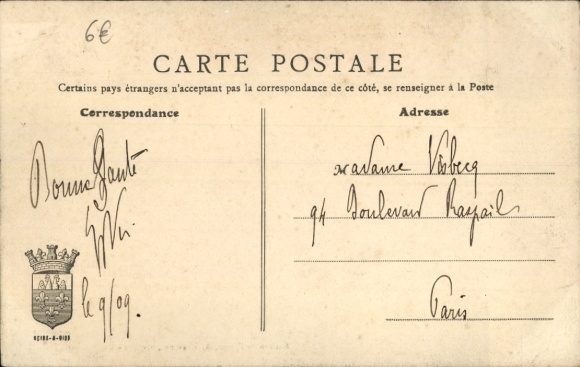 6€
CARTE POSTALE
Certains pays étrangers n'acceptant pas la correspondance de ce côté, se renseigner à la Poste
Correspondance
Adresse
Bonne Santé
le 9/09.
Madame Visbecq
94 Boulevard Raspail
Paris
SEINE-&-OISE